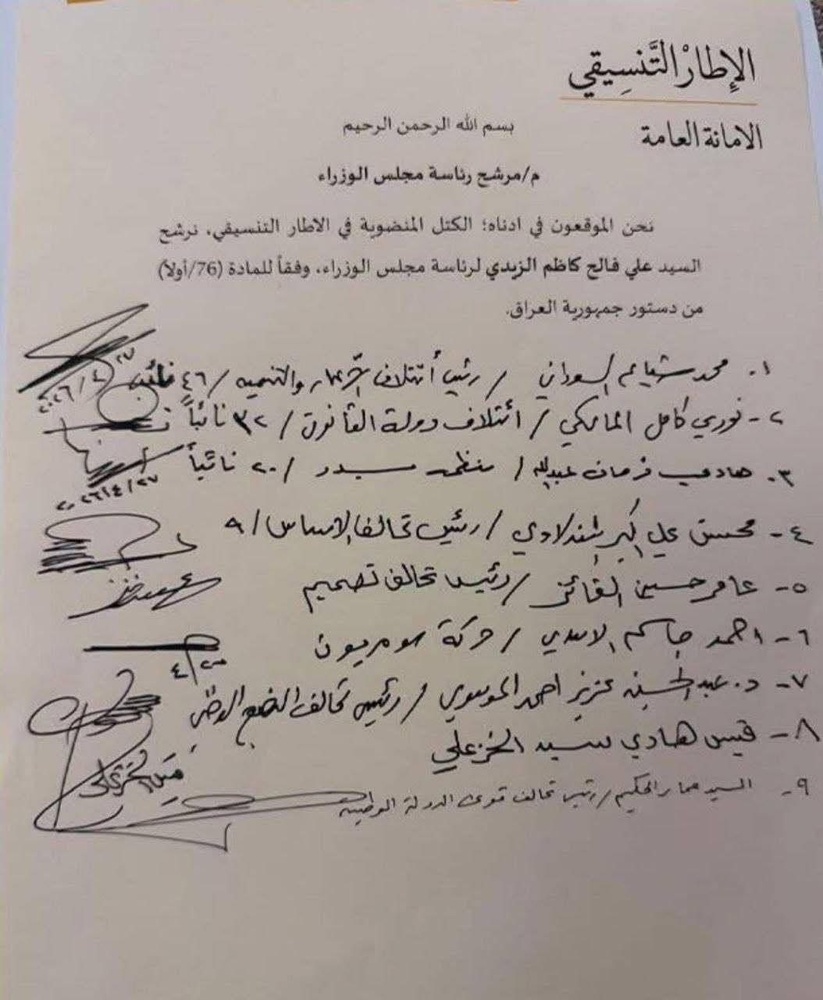 الإطار التَّنسِيقي
الامانة العامة
بسم الله الرحمن الرحيم
م/مرشح رئاسة مجلس الوزراء
نحن الموقعون في ادناه؛ الكتل المنضوية في الاطار التنسيقي، نرشح
السيد علي فالح كاظم الزيدي لرئاسة مجلس الوزراء، وفقاً للمادة (76/أولاً)
من دستور جمهورية العراق.
١. محمد شياع السوداني / رئيس أئتلاف الاعمار والتنميه / ٤٦ نائب
٢٠٢٦/٤/٢٧
٢- نوري كامل المالكي / أئتلاف دولة القانون / ٣٢ نائباً
٣. هادي فرحان عبدالله / منظمة بدر / ٢٠ نائباً
٢٠٢٦/٤/٢٧
٤- محسن علي اكبر / رئيس تحالف الاساس / ٩
٥- عامر حسين الفائز / رئيس تحالف تصميم
٦- احمد جاسم الاسدي / حركة سومريون
٤/٢٠
٧- د. عبد الحسين عزيز احمد الموسوي / رئيس تحالف النهج الوطني
٨- قيس هادي سيد الخزعلي
قيس الخزعلي
٩- السيد عمار الحكيم / رئيس تحالف قوى الدولة الوطنية